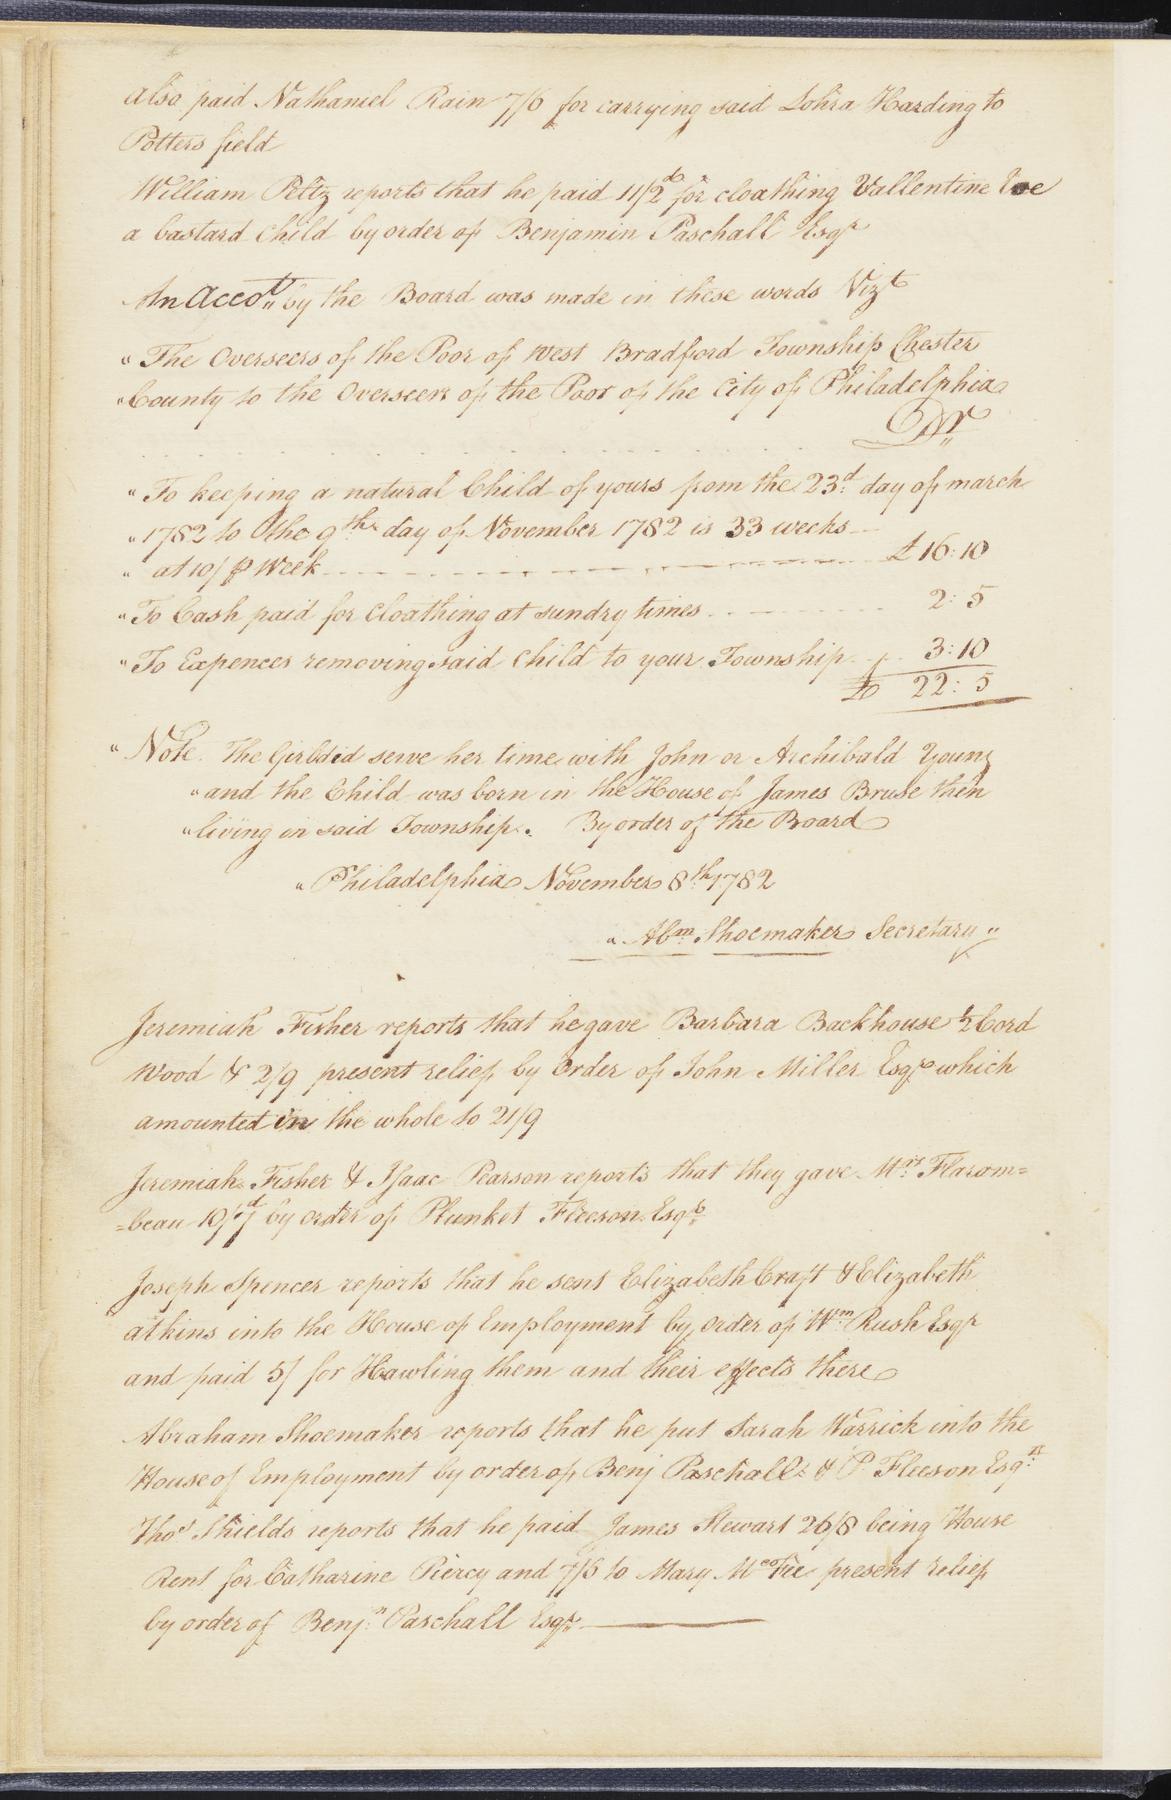 also paid Nathaniel Rain 7/6 for carrying said Lohra Harding to
Potters field
William Peltz reports that he paid 11/2d for cloathing Vallentine
a bastard Child by order of Benjamin Paschall Esqr
An Accot. by the Board was made in these words Vizt
" The Overseers of the Poor of West Bradford Township Chester
" County to the Overseers of the Poor of the City of Philadelphia
Dr
" To keeping a natural Child of yours from the 23d. day of march
" 1782 to the 9th day of November 1782 is 33 weeks
" at 10/ ⅌ Week £ 16:10
" To Cash paid for Cloathing at sundry times 2: 5
" To Expences removing said Child to your Township 3:10
£ 22: 5
" Note. The Girl did serve her time with John or Archibald Young
" and the Child was born in the House of James Bruse then
" living in said Township. By order of the Board
" Philadelphia November 8th 1782
" Abm. Shoemaker Secretary "
Jeremiah Fisher reports that he gave Barbara Backhouse ½ Cord
Wood & 2/9 present relief by Order of John Miller Esqr which
amounted in the whole to 21/9
Jeremiah Fisher & Isaac Pearson reports that they gave Mrs. Flarom=
=beau 10/7d by order of Plunket Fleeson Esqr.
Joseph Spencer reports that he sent Elizabeth Craft & Elizabeth
atkins into the House of Employment by order of Wm. Rush Esqr
and paid 5/ for Hawling them and their effects there
Abraham Shoemaker reports that he put Sarah Warrick into the
House of Employment by order of Benj Paschall & P. Fleeson Esqrs
Thos Shields reports that he paid James Stewart 26/8 being House
Rent for Catharine Piercy and 7/6 to Mary McFee present relief
by order of Benjn. Paschall Esqr.